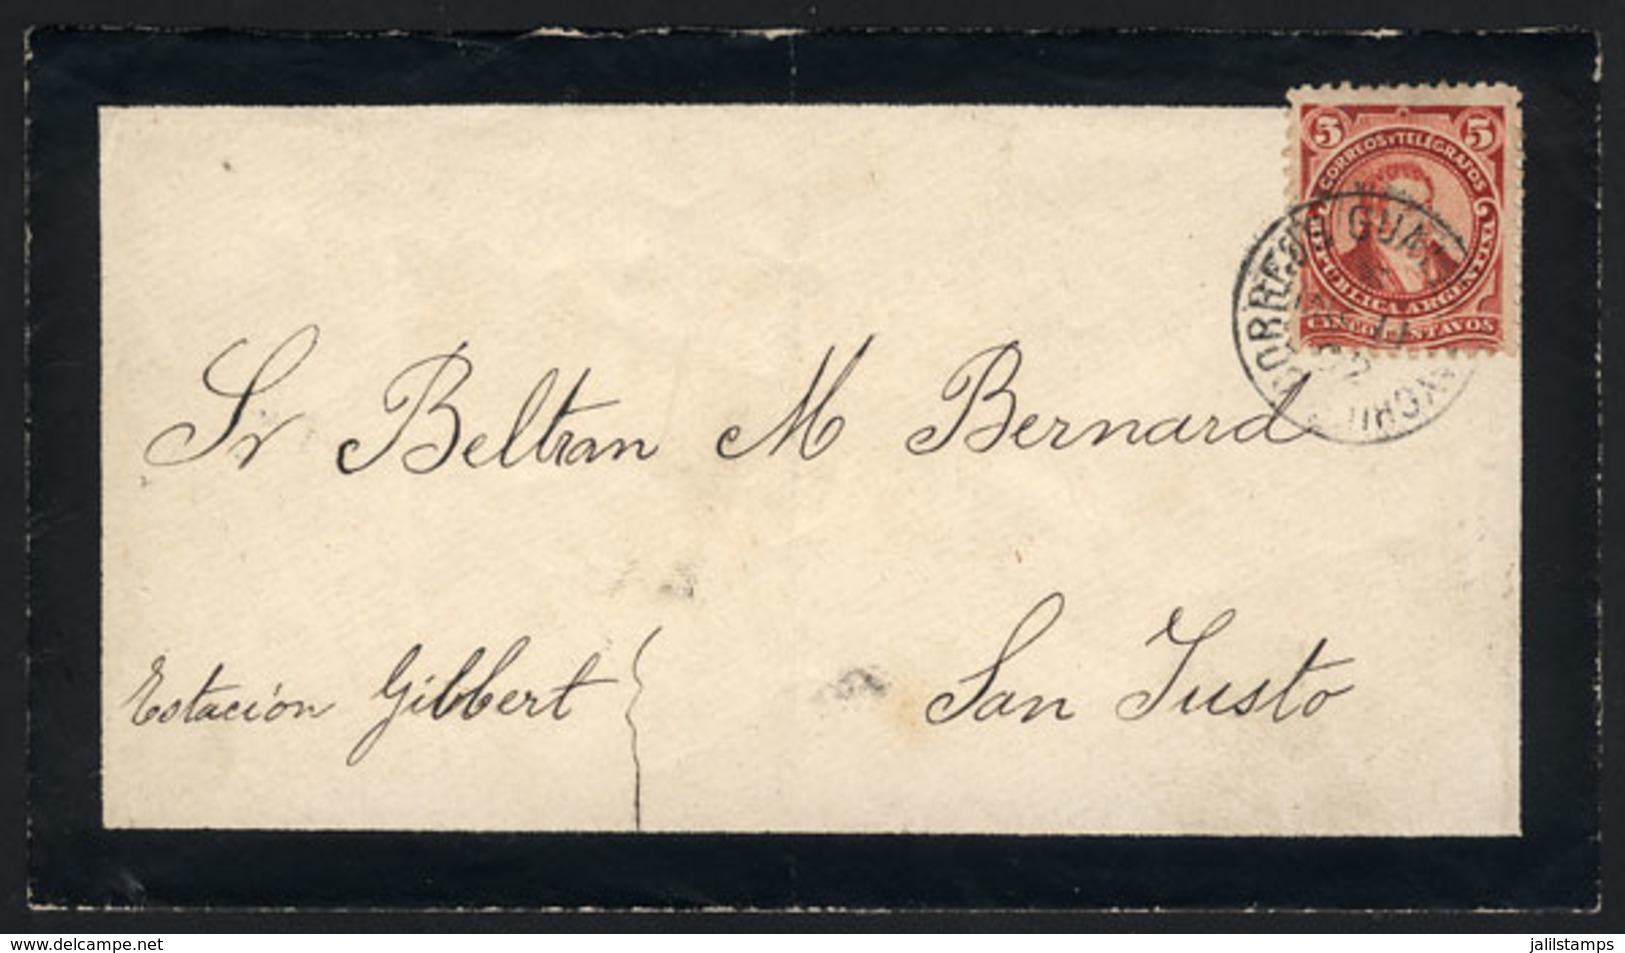 5 5
CORREOS Y TELEGRAFOS
REPUBLICA ARGENTINA
CINCO CENTAVOS
CORREOS
11
Sr Beltran M Bernard
San Justo
Estación Gibbert
www.delcampe.net
jalilstamps